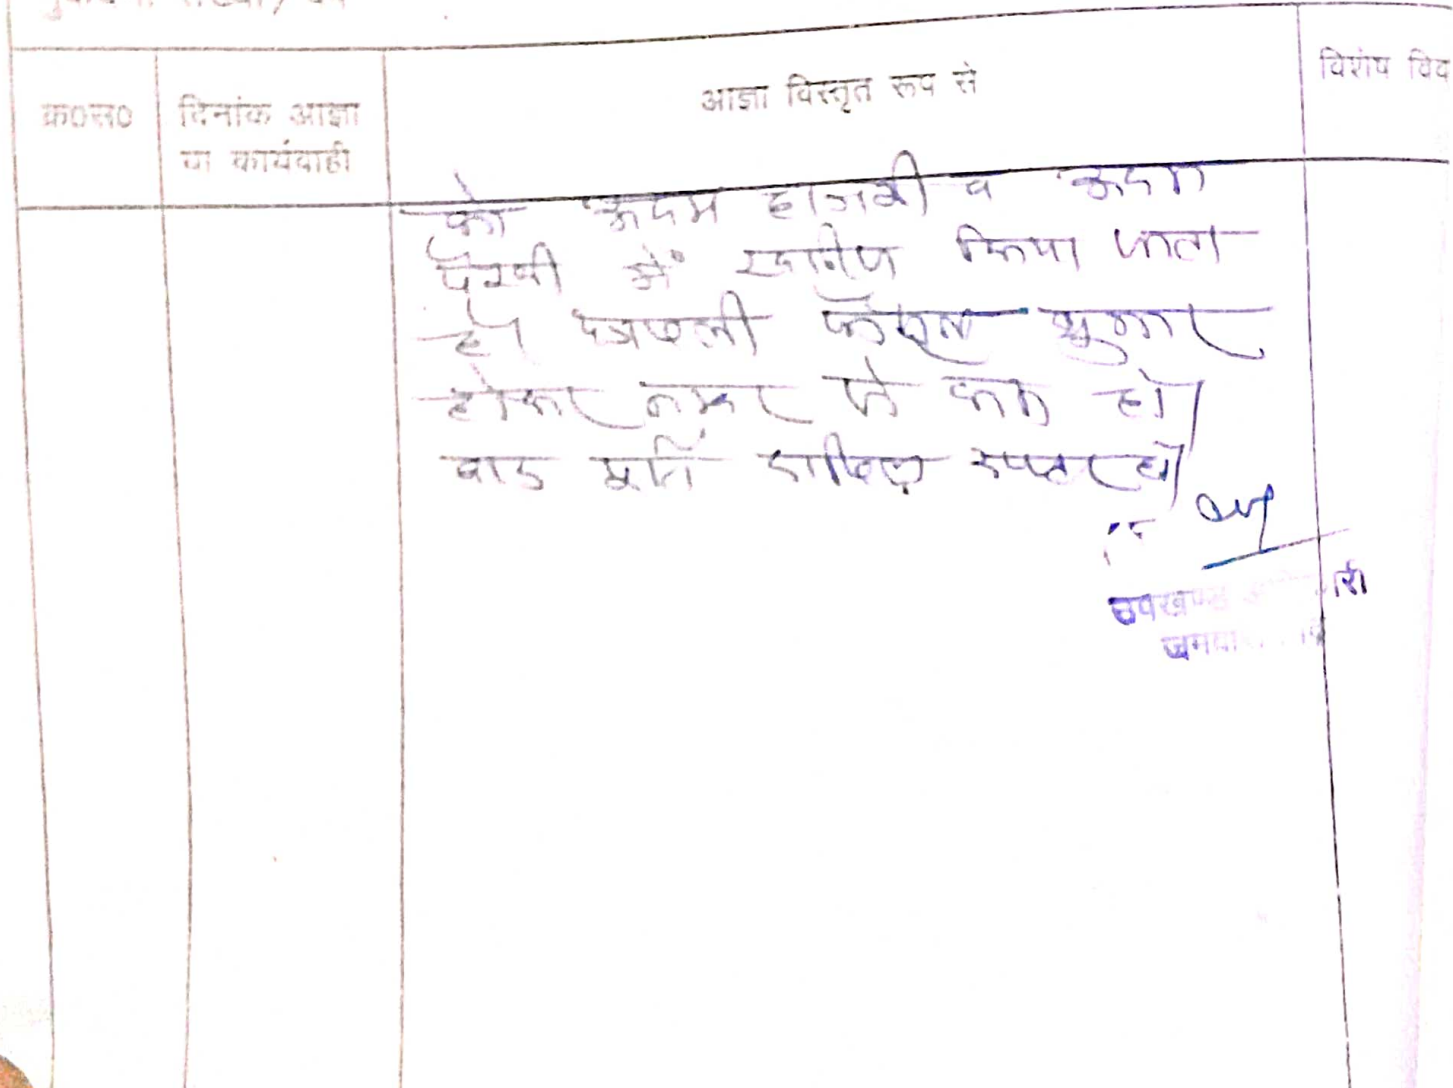 क्र०सं०
दिनांक आज्ञा
या कार्यवाही
आज्ञा विस्तृत रूप से
विशेष विव
को अदम हाजरी व अदम
पैरवी में खारीज किया जाता
है। पत्रावली फैसल शुमार
होकर नम्बर से कम हो।
बाद पूर्ति दाखिल दफ्तर हो।
उपखण्ड